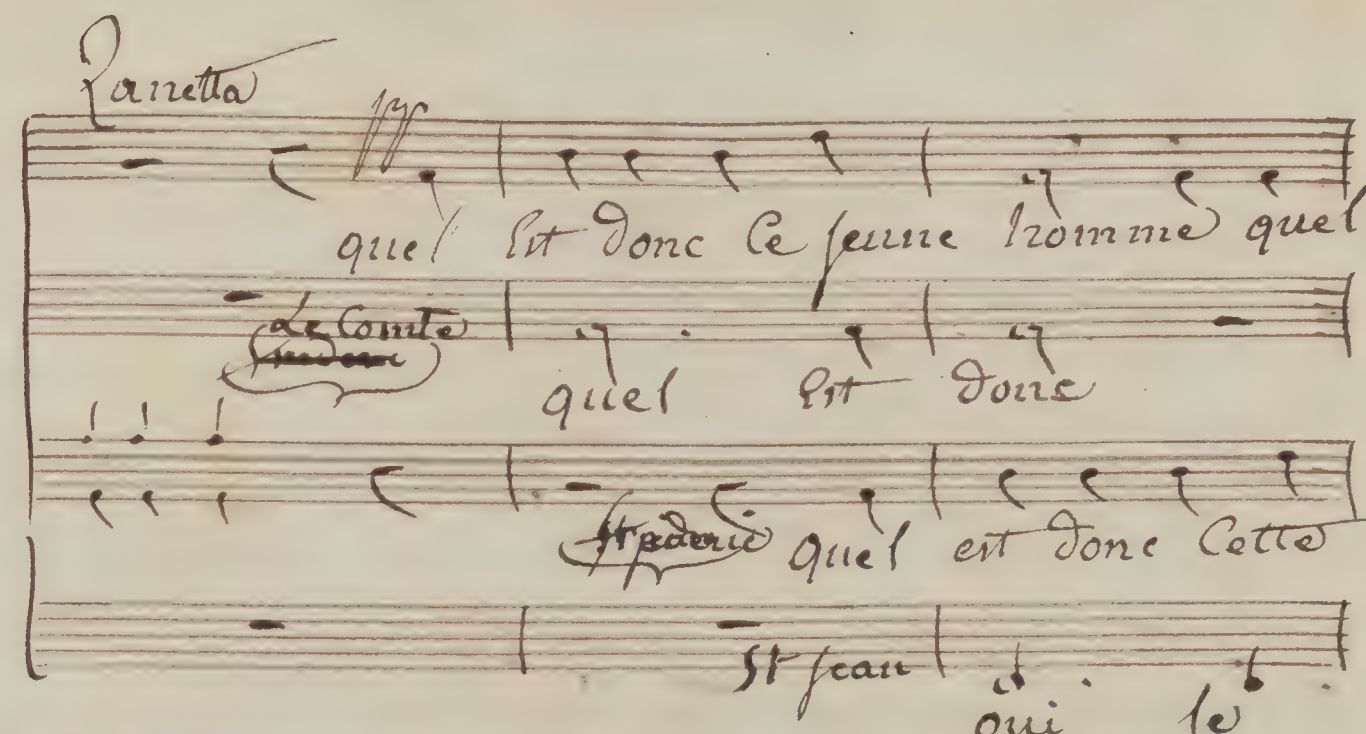 Zanetta
quel Est donc Ce jeune homme quel
Le Comte
quel Est donc
frederic quel est donc Cette
St jean
oui le